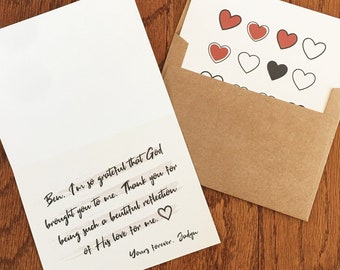 Ben, I'm so grateful that God
brought you to me. Thank you for
being such a beutiful reflection
of His love for me.
Yours forever, Jadyn